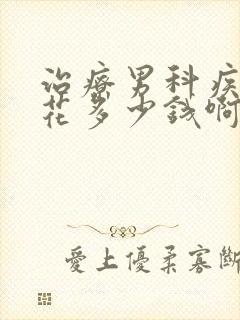 治療男科疾
花多少錢啊
愛上優柔寡斷